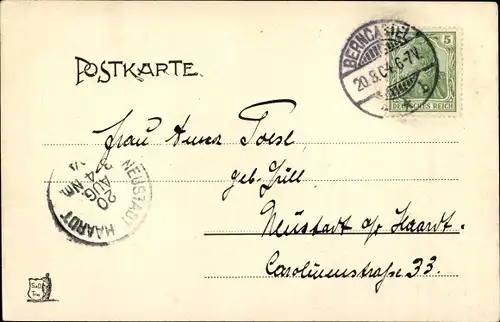 POSTKARTE.
BERNCASTEL
20.8.04.6-7N.
b
5
DEUTSCHES REICH
Frau Anna
geb. Zill
Neustadt a/ Haardt.
Carolinenstraße 33.
NEUSTADT HAARDT
20 AUG
3-4 Nm.
04